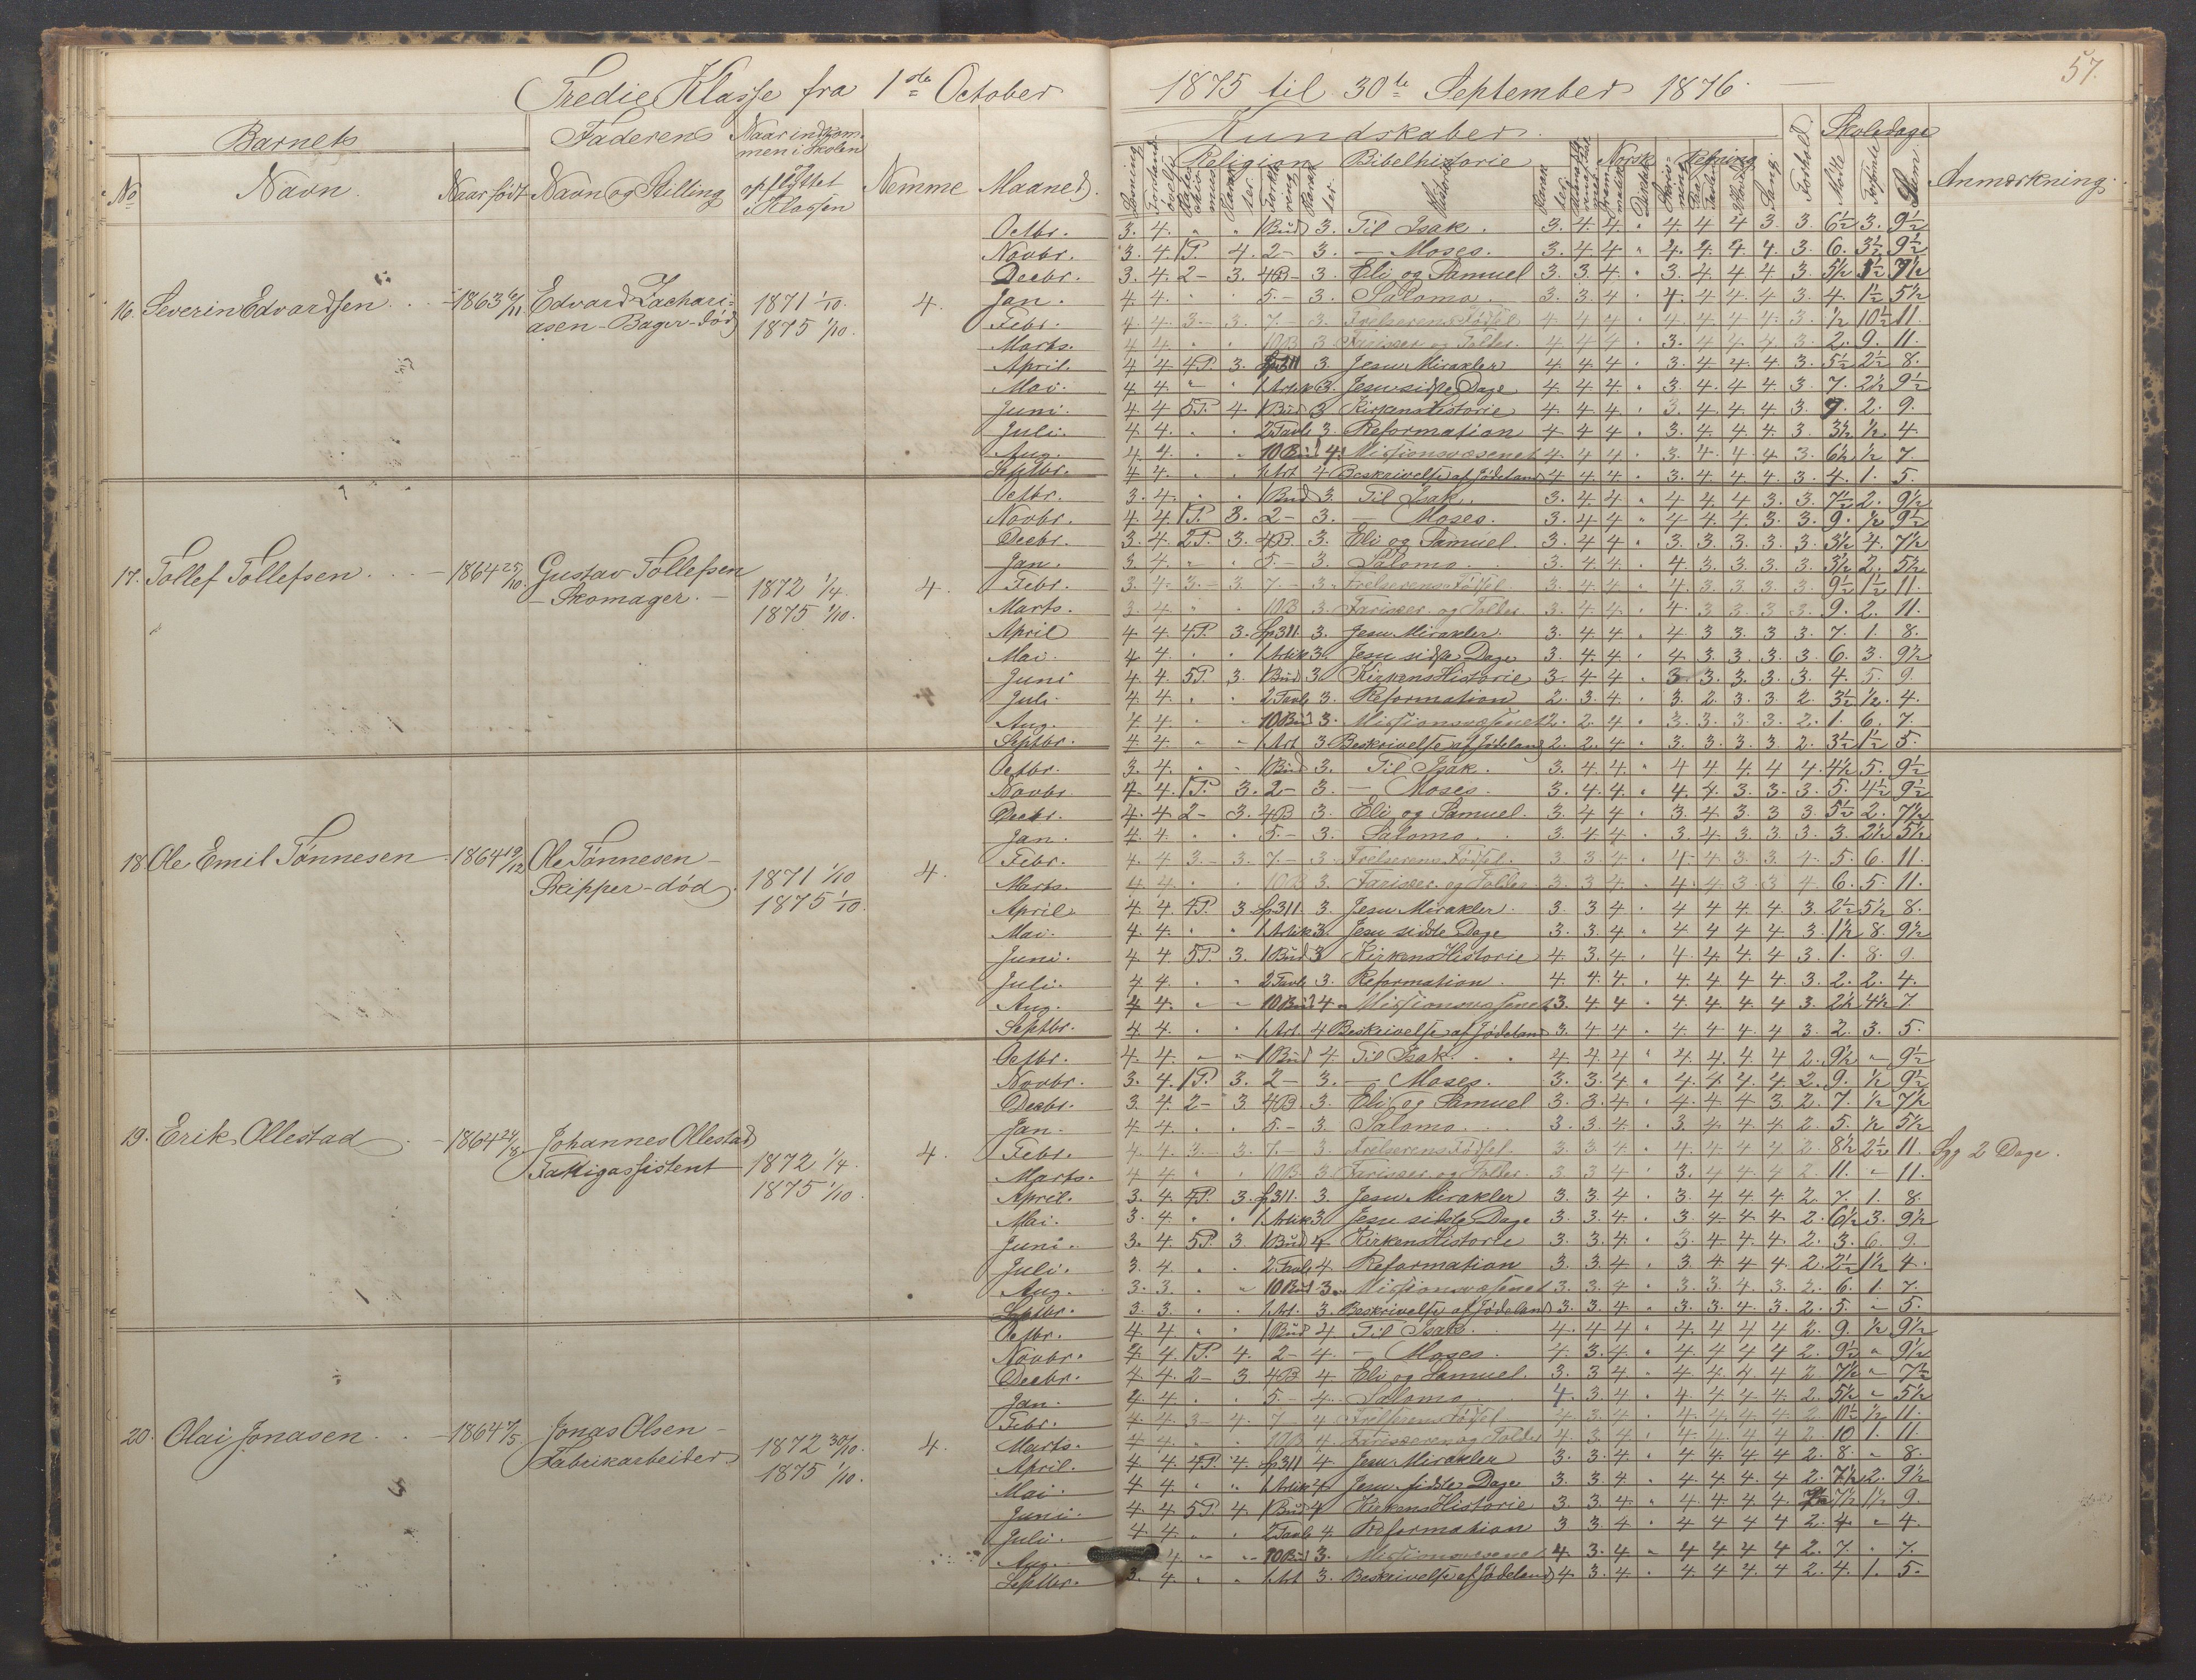 Tredie Klasse fra 1ste October 1875 til 30te September 1876.
57.
Barnets Faderens Naar indkommen i Skolen og opflyttet i Klassen Kundskaber. Forhold. Skoledage
No Navn. Naar født Navn og Stilling Nemme Maaned. Religion Bibelhistorie Norsk Regning Sang. Mødte Forsømte Sum Anmærkning.
16. Severin Edvardsen 1863 6/11 Edvard Zachariasen - Bager - død 1871 1/10. 1875 1/10. 4.
Octbr. 3. 4. " " 1 Bud 3. Til Isak. 3. 4. 4. " 4. 4 4 3 3. 6½ 3. 9½
Novbr. 3. 4. 1P. 4. 2 - 3. — Moses. 3. 4 4 " 4. 4. 4. 4 3 6. 3½ 9½
Decbr. 3. 4. 2 - 3. 4B - 3. Eli og Samuel 3. 3. 4.
Jan. 4 4 5. - 3. Salomo. 3. 3. 4 4. 4 4. 4 3. 4. 1½ 5½
Febr. 4. 4. 3 - 3. 7. - 3. Frelserens Fødsel 4 4 4 4. 4. 4. 4. 3. ½ 10½ 11.
Marts. 4 4 10B 3 Farisæer og Tolder. 4. 4. 4. 3. 4. 4. 4. 3. 2. 9. 11.
April. 4 4 4P. 3. 3. Jesu Mirakler 4 4 4. 3. 4. 4 4. 3. 5½ 2½ 8.
Mai. 4 4. 1 Artik 3. Jesu sidste Dage 4 4 4. 3. 4. 4. 4. 3. 7. 2½ 9½
Juni. 4. 4 5P. 4. 1 Bud 3 Kirkens Historie 4. 4. 4. 3. 4. 4. 4 3. 7. 2. 9.
Juli. 4 4. 2 Tavle 3. Reformation 4 4 4 3. 4. 4. 4. 3. 3½ ½. 4
Aug. 4 4. 10 Bud 4. Missionsvæsenet 4. 4. 4. 3. 4. 4. 4 3. 6½ ½ 7.
Septbr. 4 4. 1 Art 4 Beskrivelse af Jødeland 4 4 4. 3. 4. 4. 4. 3. 4. 1. 5.
17. Tollef Tollefsen. 1864 25/10. Gustav Tollefsen - Skomager. - 1872 1/4. 1875 1/10. 4.
Octbr. 3. 4. 1 Bud 3. Til Isak. 3. 4. 4. 4. 4. 4 3. 3. 7½ 2. 9½
Novbr. 4. 4. 1P. 3. 2 - 3. — Moses. 3. 4 4 4 4. 4. 3. 3. 9. ½ 9½
Decbr. 3. 4. 2P. 3. 4B. 3. Eli og Samuel. 3. 4 4. 3. 3. 3. 3. 3. 3½ 4. 7½
Jan. 3 4. 5. - 3. Salomo. 3. 4 4. 4. 3. 3. 3. 3. 3½ 2. 5½
Febr. 3. 4. 3. - 3 7. - 3. Frelserens Fødsel. 3. 4 4. 4 3. 3. 3. 3. 9½ 1½ 11.
Marts. 3. 4. 10B 3. Farisæer og Tolder 3. 4 4. 4. 3 3. 3. 3. 9. 2. 11.
April 4 4. 4P. 3. 3. Jesu Mirakler. 3. 4. 4. 4 3 3. 3 3. 7. 1. 8.
Mai. 4 4. 1 Artik 3. Jesu sidste Dage 3. 4. 4. 4 3. 3. 3. 3. 6. 3. 9½
Juni 4. 4. 5P. 3. 1 Bud 3. Kirkens Historie 3. 4 4. 3 3. 3. 3. 3. 4. 5. 9.
Juli. 4 4. 2 Tavle 3. Reformation 2. 3. 4. 3. 2. 3. 3 2. 3½ ½. 4.
Aug. 4 4. 10 Bud 3. Missionsvæsenet 2. 2. 4. 3. 3. 3. 3. 2. 1. 6. 7.
Septbr. 4 4. 1 Art 3 Beskrivelse af Jødeland 2. 2. 4. 3. 3. 3. 3. 2. 3½ 1½ 5.
18. Ole Emil Tønnesen 1864 19/12 Ole Tønnesen - Skipper - død. 1871 1/10 1875 1/10. 4.
Octbr. 3. 4. 1 Bud 3. Til Isak. 3. 4. 4. 4 4 4. 4 4. 4½ 5. 9½
Novbr. 4. 4. 1P. 3. 2 - 3. — Moses. 3. 4. 4. 4. 4 3. 3. 3. 5. 4½ 9½
Decbr. 4. 4 2 - 3. 4B 3. Eli og Samuel. 3. 4 4. 3. 4. 3 3 3. 5½ 2. 7½
Jan. 4. 4. 5. - 3. Salomo. 3. 4 4. 3 4. 3. 3. 3. 3. 2½ 5½
Febr. 4. 4. 3. - 3. 7. - 3. Frelserens Fødsel. 3. 3. 4. 4 4. 3. 3. 4. 5. 6. 11.
Marts. 4. 4. 10B 3. Farisæer og Tolder. 3. 3. 4. 4. 4 3. 3 4. 6. 5. 11.
April. 4. 4. 4P. 3. 3. Jesu Mirakler. 3. 3 4. 4 4 4. 4. 3. 2½ 5½ 8.
Mai. 4. 4. 1 Artik 3. Jesu sidste Dage 3. 3. 4. 4 4 4 4. 3. 1½ 8. 9½
Juni. 4 4. 5P. 3. 1 Bud 3 Kirkens Historie 4. 3. 4. 4. 4. 4. 4 3. 1. 8. 9.
Juli. 4 4. 2 Tavle 3. Reformation. 4. 4. 4. 4. 4. 4 4 3. 2. 2. 4.
Aug. 4 4. 10 Bud 4. Missionsvæsenet 3. 4 4. 4. 4. 4 4 3. 2½ 4½ 7.
Septbr. 4 4. 1 Art. 4 Beskrivelse af Jødeland 3. 4 4. 4 4 4. 4 3. 2. 3. 5.
19. Erik Ollestad 1864 24/8 Johannes Ollestad Fattigassistent 1872 1/4. 1875 1/10. 4.
Octbr. 4. 4. 1 Bud 4. Til Isak. 4. 4. 4 4. 4. 4. 4 2. 9½ - 9½
Novbr. 3. 4. 1P. 3. 2 - 3. — Moses. 3. 3. 4. 4. 4. 4. 4. 2. 9. ½ 9½
Decbr. 3. 4. 2 - 3 4B 3. Eli og Samuel 3. 3. 4. 4. 4 4 3. 2. 7. ½ 7½
Jan. 4. 4. 5. - 3. Salomo. 3. 3. 4. 3. 4 4 4 2. 5. ½ 5½
Febr. 4. 4. 3. - 3. 7. - 3. Frelserens Fødsel. 3. 3 4. 4. 4. 4 4 2. 8½ 2½ 11. Syg 2 Dage.
Marts. 4 4. 10B 3 Farisæer og Tolder. 3 3 4 3. 4 4 4 2. 11. - 11.
April. 3. 4. 4P. 3. 3. Jesu Mirakler 3. 3. 4. 3. 4 4. 4. 2. 7. 1. 8.
Mai. 3. 4. 1 Artik 3 Jesu sidste Dage 3. 3. 4. 3 4 4 4. 2. 6½ 3. 9½
Juni. 3. 4. 5P. 3 1 Bud 4 Kirkens Historie 3. 3. 4. 3. 4 4. 4. 2. 3. 6. 9.
Juli. 3 4. 2 Tavle 4. Reformation 3. 3. 4. 3. 4 4 4. 2. 2½ 1½ 4.
Aug. 3. 3. 10 Bud 3. Missionsvæsenet 3. 3. 4. 3. 3. 4. 3. 2. 6. 1. 7.
Septbr. 3 3. 1 Art. 3. Beskrivelse af Jødeland 3. 3. 4. 3. 3. 4 3. 2. 5. - 5.
20. Olai Jonasen 1864 7/5. Jonas Olsen - Fabrikarbeider. 1872 30/10. 1875 1/10. 4.
Octbr. 4 4. 1 Bud 4. Til Isak. 4. 4 4 4. 4 4 4 2. 9. ½ 9½
Novbr. 4 4. 1P. 4. 2 - 4. — Moses. 4. 3. 4. 4. 4. 4 4 2. 9½ " 9½
Decbr. 4 4. 2 - 3. 4B 4 Eli og Samuel. 3. 3 4. 4. 4. 4. 4 2 7½ - 7½
Jan. 4 4. 5. - 4. Salomo 4. 3 4. 4. 4. 4 4 2. 5½ - 5½
Febr. 4. 4. 3 - 4. 7 - 4 Frelserens Fødsel 4 3. 4. 4. 4. 4. 4. 2. 10½ ½ 11.
Marts. 4 4. 10B 4. Farisæer og Tolder 4. 3 4. 4. 4. 4 4 2. 10 1. 11.
April. 4. 4. 4P. 4. 4. Jesu Mirakler 3. 3. 4. 4. 4 4 4 2. 8. " 8.
Mai. 4 4. 1 Artik 4. Jesu sidste Dage 3. 3. 4. 4. 4. 4. 4 2. 7½ 2. 9½
Juni. 4. 4 5P. 4 1 Bud 4 Kirkens Historie 3. 3. 4. 4. 4. 4 4. 7½ 1½ 9.
Juli. 4 4. 2 Tavle 4. Reformation 3. 3. 4. 4 4 4 4 2. 4. " 4.
Aug. 4 10 Bud 3. Missionsvæsenet 4. 3. 4. 4 4 4 4 2. 7. " 7.
Septbr. 3. 4. 1 Art 3. Beskrivelse af Jødeland 4. 3. 4. 4. 4. 4 4 2. 4. 1. 5.